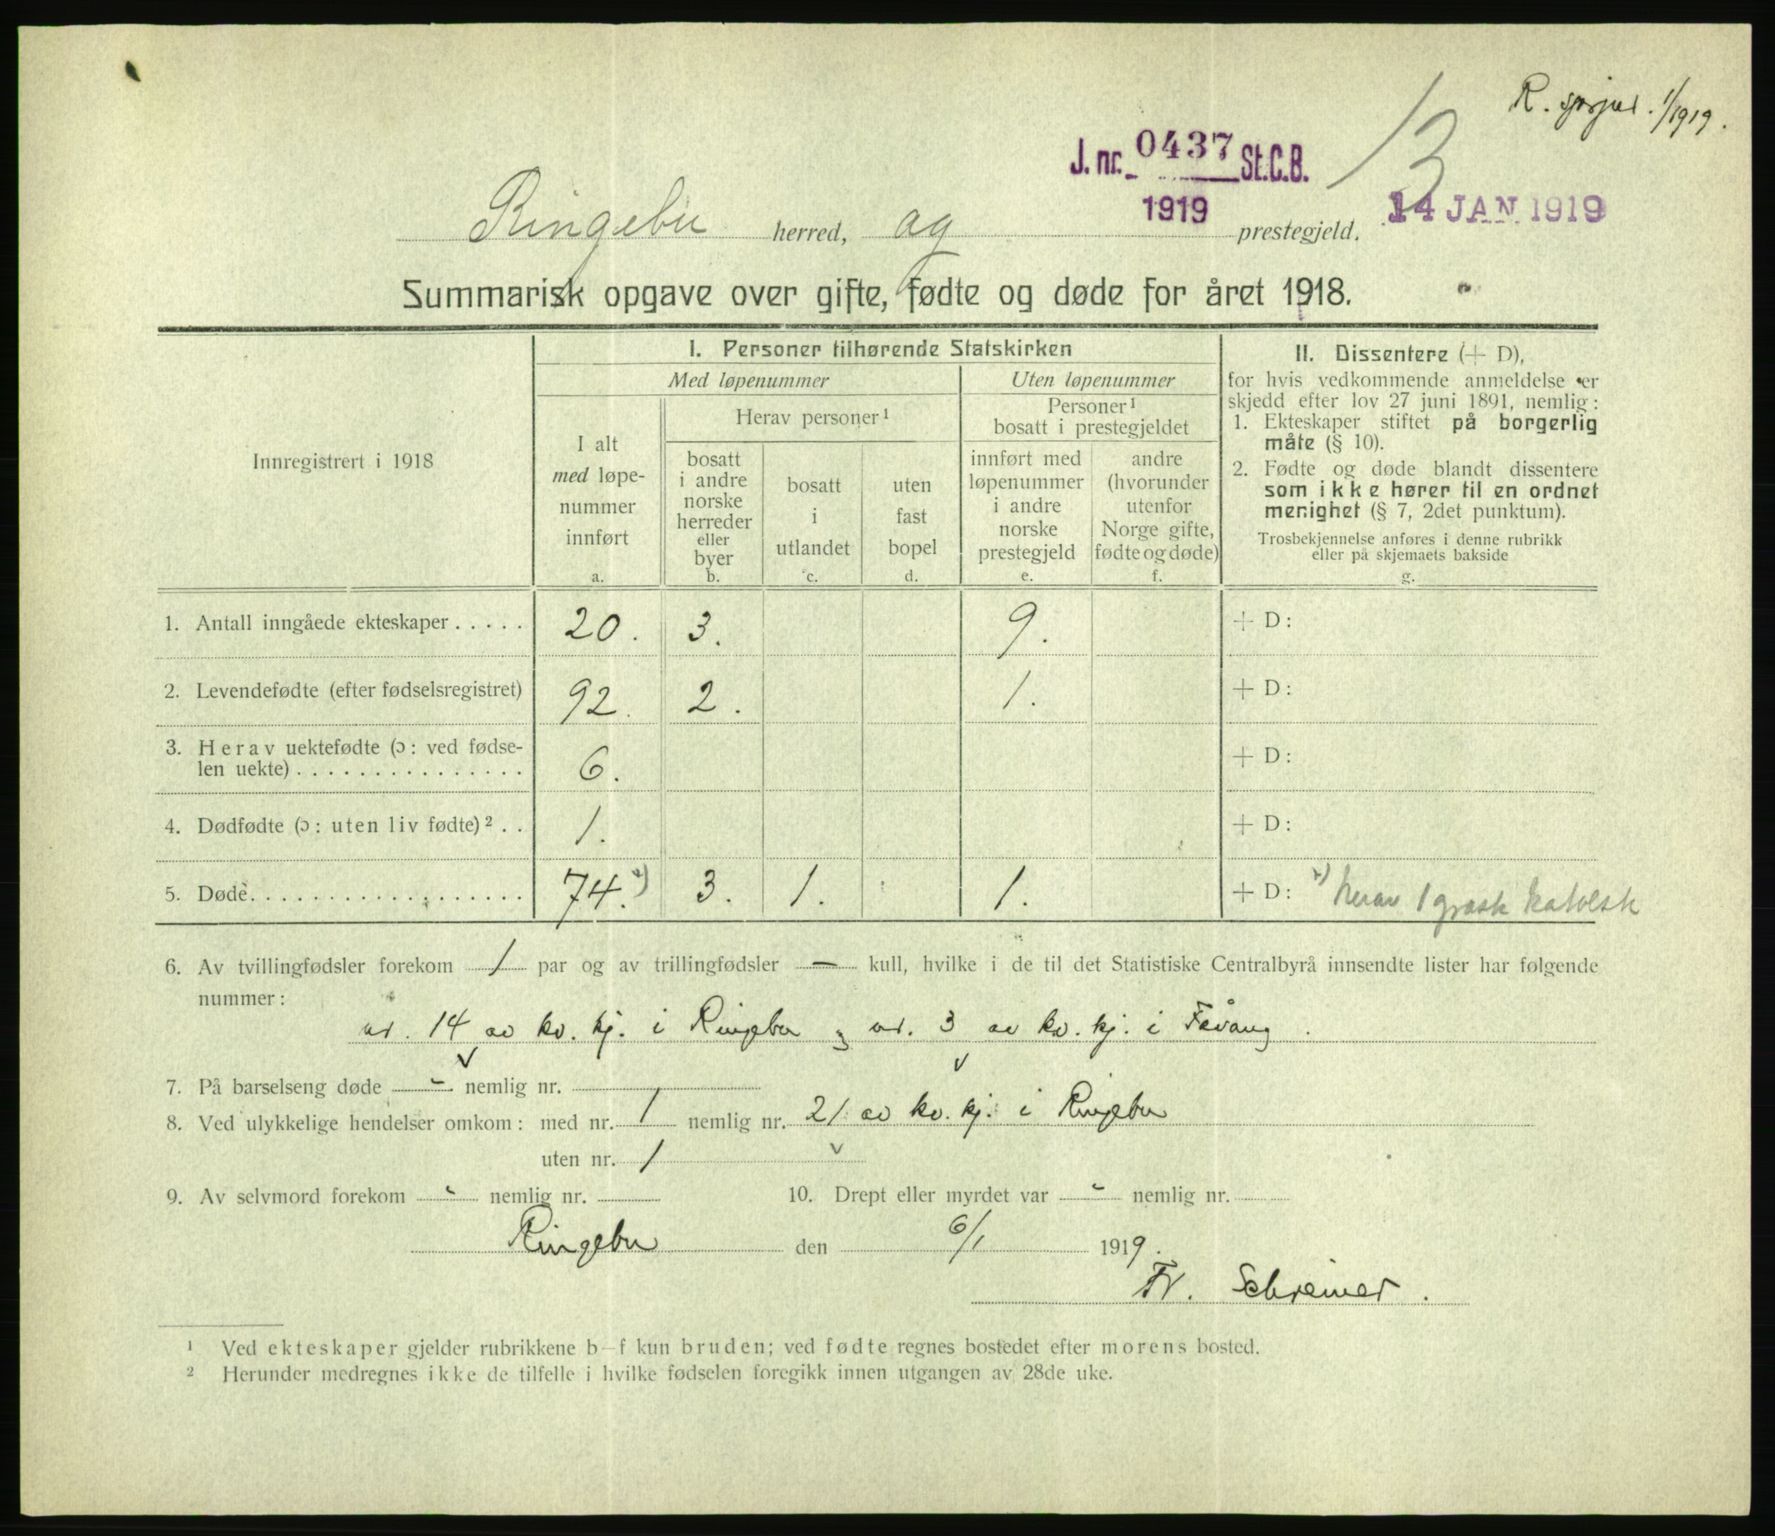 R. 1/1919.
13
J. nr. 0437 St.C.B.
1919
14 JAN 1919
Ringebu herred, og prestegjeld.
Summarisk opgave over gifte, fødte og døde for året 1918.
Innregistrert i 1918
I. Personer tilhørende Statskirken
Med løpenummer
Uten løpenummer
I alt
med løpe-
nummer
innført
a.
Herav personer¹
bosatt
i andre
norske
herreder
eller
byer
b.
bosatt
i
utlandet
c.
uten
fast
bopel
d.
Personer¹
bosatt i prestegjeldet
innført med
løpenummer
i andre
norske
prestegjeld
e.
andre
(hvorunder
utenfor
Norge gifte,
fødte og døde)
f.
II. Dissentere (+ D),
for hvis vedkommende anmeldelse er
skjedd efter lov 27 juni 1891, nemlig:
1. Ekteskaper stiftet på borgerlig
måte (§ 10).
2. Fødte og døde blandt dissentere
som ikke hører til en ordnet
menighet (§ 7, 2det punktum).
Trosbekjennelse anføres i denne rubrikk
eller på skjemaets bakside
g.
1. Antall inngåede ekteskaper..... 20. 3. 9. + D:
2. Levendefødte (efter fødselsregistret) 92. 2. 1. + D:
3. Herav uektefødte (ɔ: ved fødse-
len uekte)............... 6. + D:
4. Dødfødte (ɔ: uten liv fødte)².. 1. + D:
5. Døde.................. 74.*) 3. 1. 1. + D: *) herav 1 græsk katolsk
6. Av tvillingfødsler forekom 1 par og av trillingfødsler — kull, hvilke i de til det Statistiske Centralbyrå innsendte lister har følgende
nummer:
nr. 14 av kv. kj. i Ringebu og nr. 3 av kv. kj. i Fåvang.
7. På barselseng døde - nemlig nr.
8. Ved ulykkelige hendelser omkom: med nr. 1 nemlig nr. 21 av kv. kj. i Ringebu
uten nr. 1
9. Av selvmord forekom - nemlig nr. 10. Drept eller myrdet var - nemlig nr.
Ringebu den 6/1 1919.
Fr. Schreiner.
¹ Ved ekteskaper gjelder rubrikkene b–f kun bruden; ved fødte regnes bostedet efter morens bosted.
² Herunder medregnes ikke de tilfelle i hvilke fødselen foregikk innen utgangen av 28de uke.